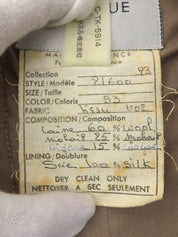 QUE
C-TK-5914
MA
FRANCE
Collection 93
STYLE/Modèle 21600
SIZE/Taille
COLOR/Coloris 93
FABRIC tissu U02
COMPOSITION/Composition
Laine 60 % Wool
mohair 25 % Mohair
15 %
LINING/Doublure
Soie 100 % Silk
DRY CLEAN ONLY
NETTOYER A SEC SEULEMENT